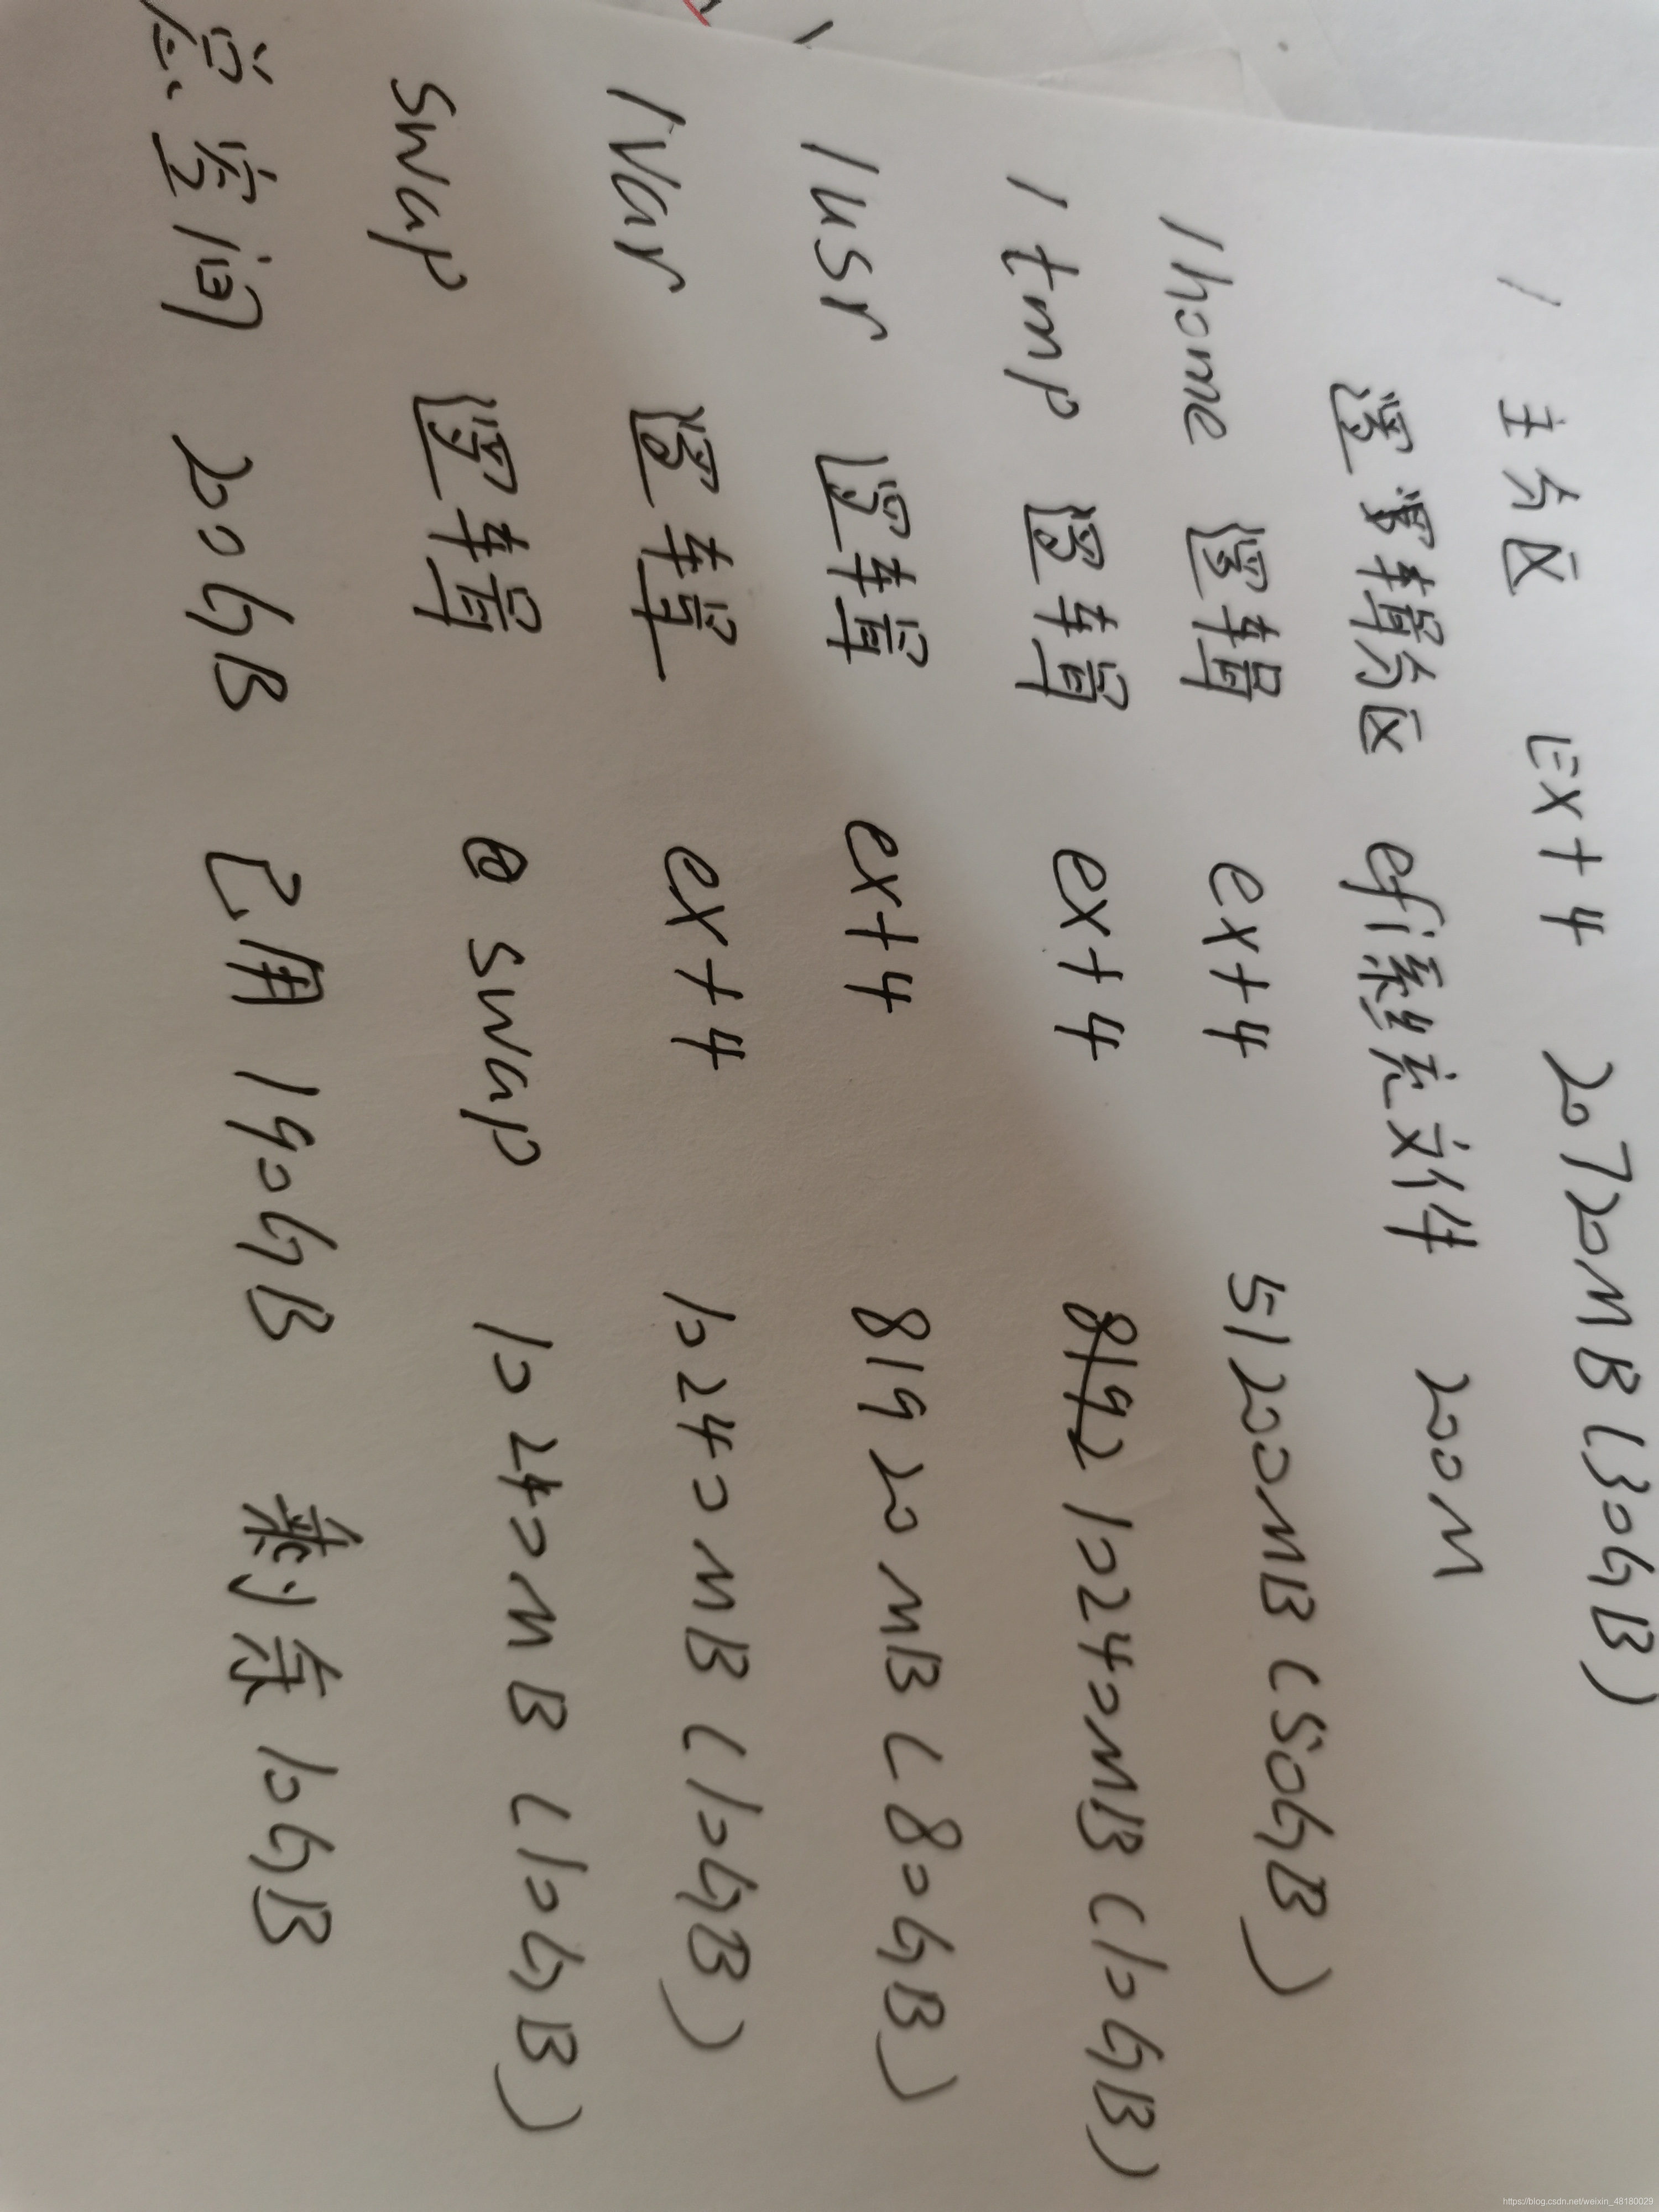 / 主分区 Ext4 20720MB(30GB)
逻辑分区 efi系统文件 200M
/home 逻辑 ext4 51200MB(50GB)
/tmp 逻辑 ext4 8192 10240MB(10GB)
/usr 逻辑 ext4 81920MB(80GB)
/var 逻辑 ext4 10240MB(10GB)
swap 逻辑 swap 10240MB(10GB)
总空间 200GB 已用190GB 剩余10GB
https://blog.csdn.net/weixin_48180029